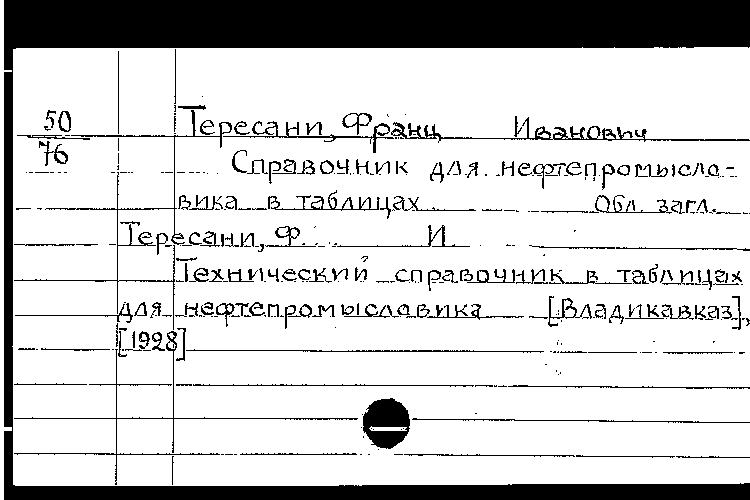 50
76
Тересани, Франц Иванович
Справочник для нефтепромысло-
вика в таблицах Обл. загл.
Тересани, Ф. И.
Технический справочник в таблицах
для нефтепромысловика [Владикавказ],
[1928]